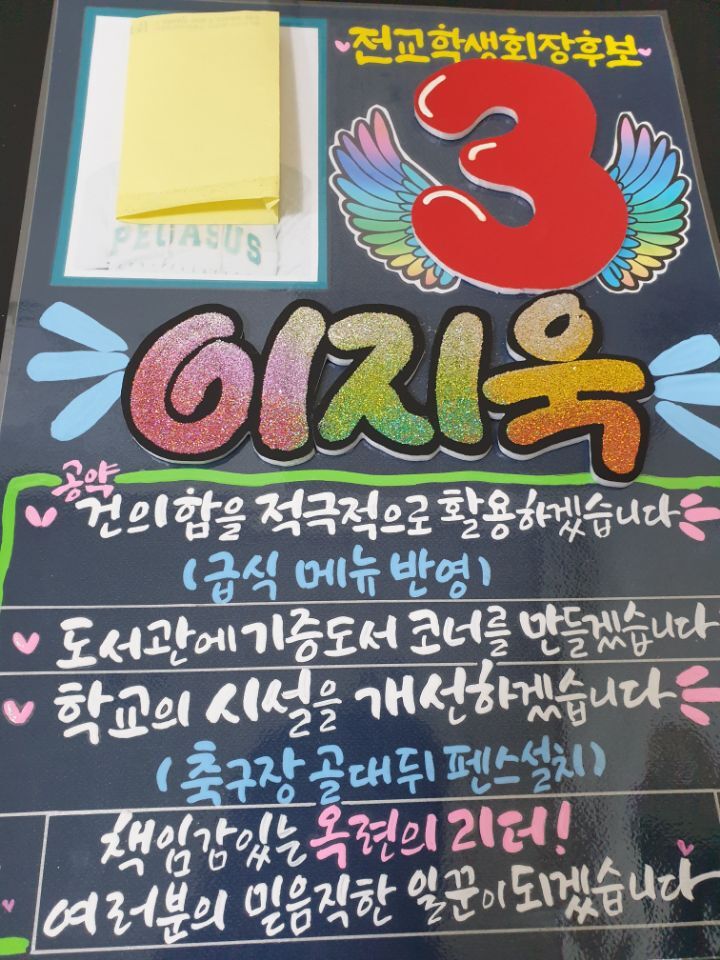 전교학생회장후보
3
PEGASUS
이지욱
공약
건의함을 적극적으로 활용하겠습니다
(급식 메뉴 반영)
도서관에 기증도서 코너를 만들겠습니다
학교의 시설을 개선하겠습니다
(축구장 골대뒤 펜스설치)
책임감있는 옥련의 리더!
여러분의 믿음직한 일꾼이 되겠습니다